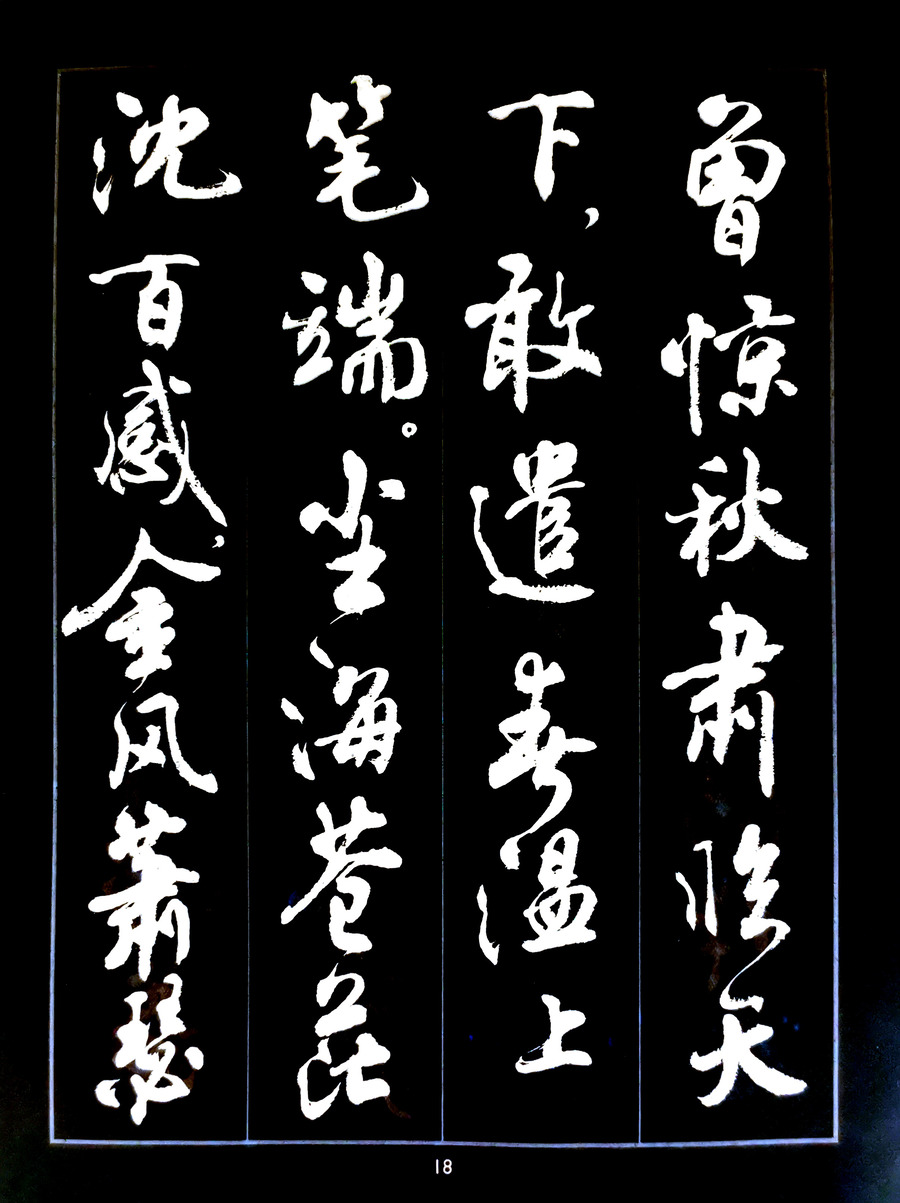 曾惊秋肃临天
下，敢遣春温上
笔端。尘海苍茫
沈百感，金风萧瑟
18